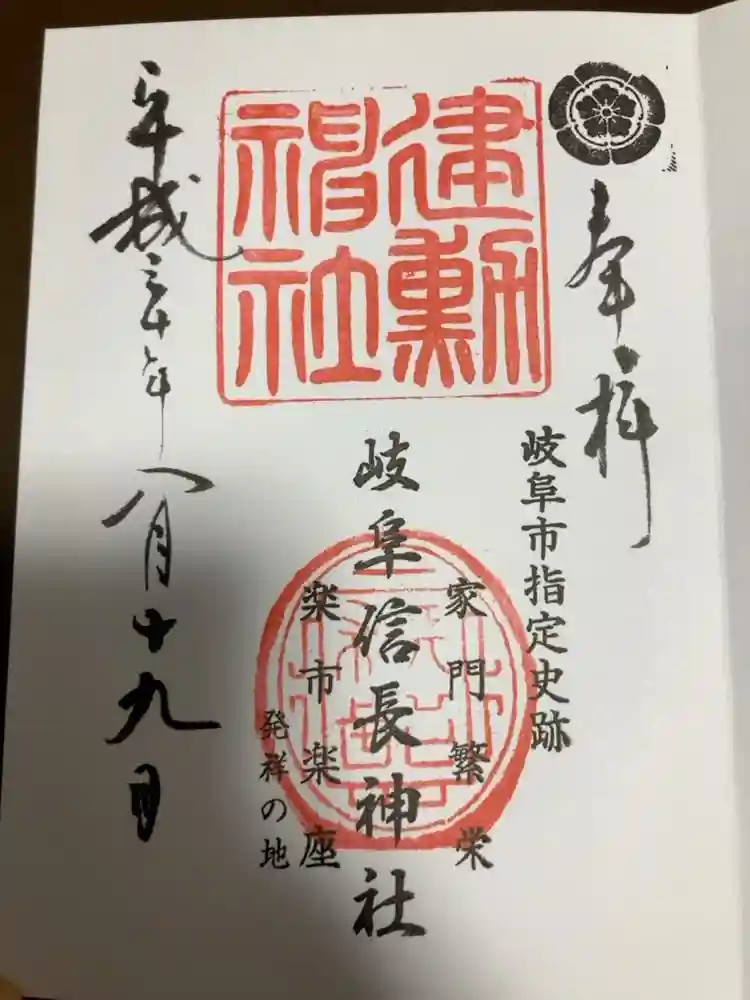 奉拝
岐阜市指定史跡
建勲
神社
家門繁栄
岐阜信長神社
楽市楽座
発祥の地
平成三十年八月十九日